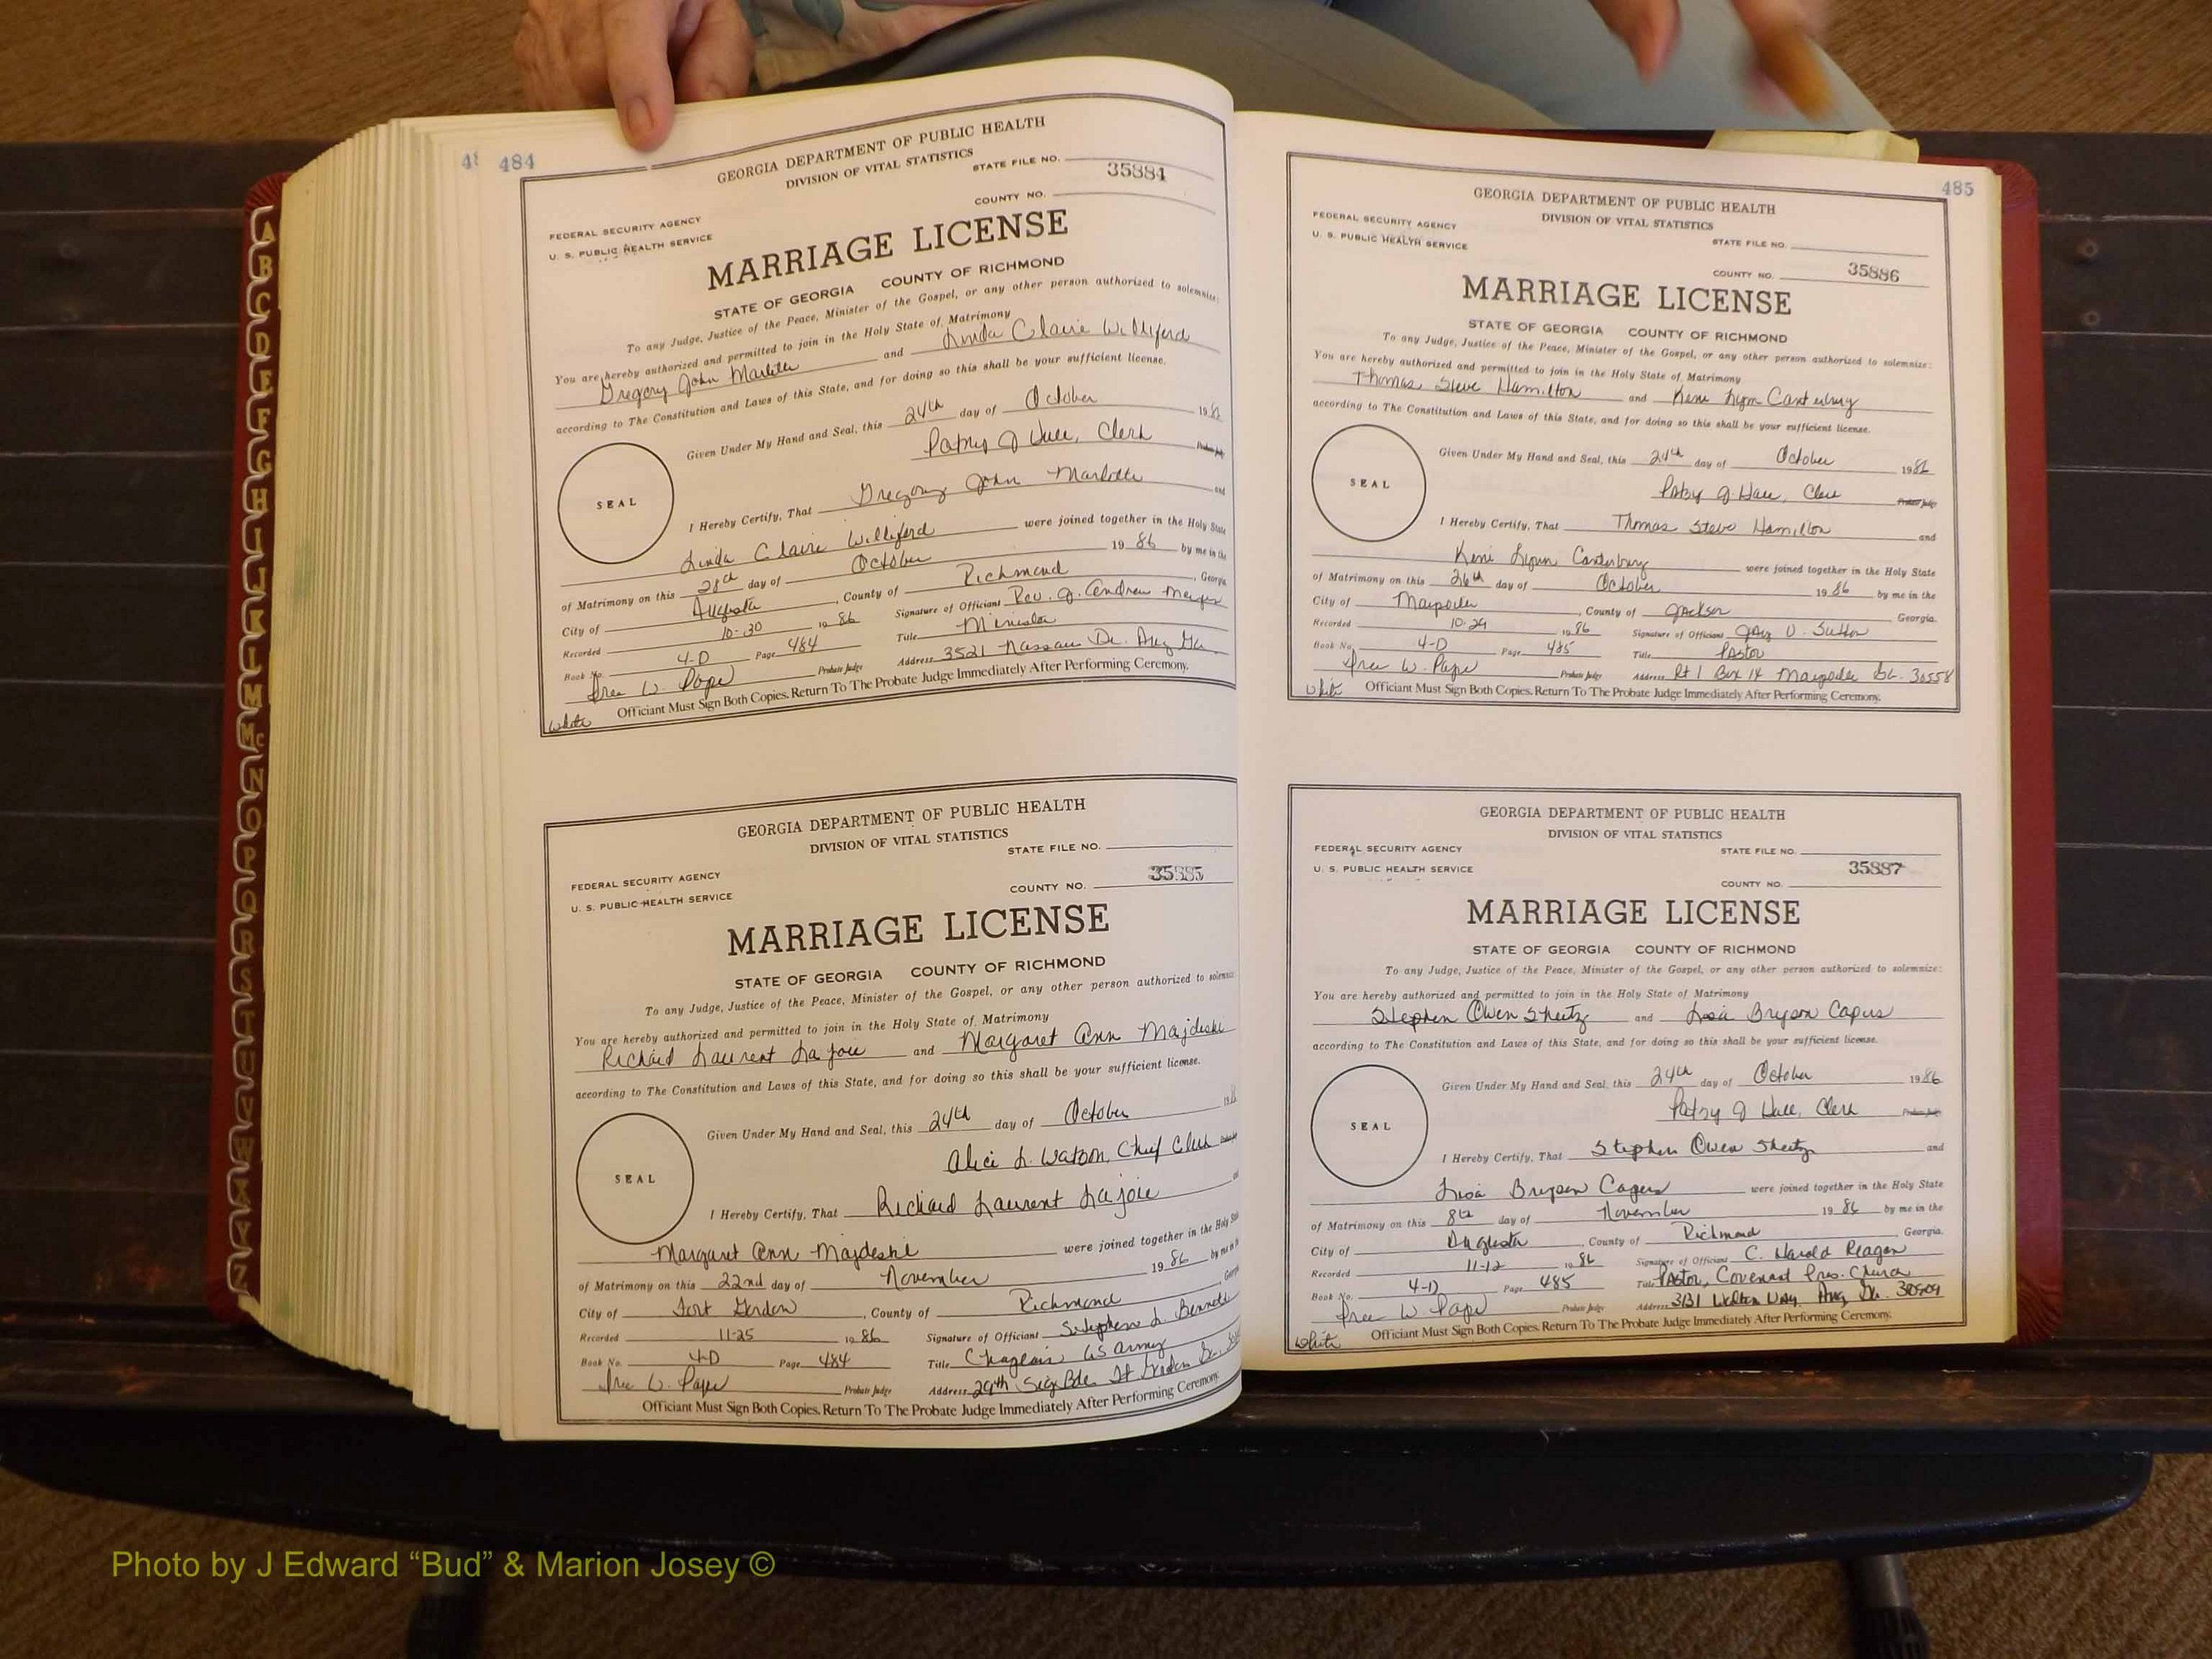 484
GEORGIA DEPARTMENT OF PUBLIC HEALTH
DIVISION OF VITAL STATISTICS
STATE FILE NO. 35884
COUNTY NO.
FEDERAL SECURITY AGENCY
U. S. PUBLIC HEALTH SERVICE
MARRIAGE LICENSE
STATE OF GEORGIA COUNTY OF RICHMOND
To any Judge, Justice of the Peace, Minister of the Gospel, or any other person authorized to solemnize:
You are hereby authorized and permitted to join in the Holy State of Matrimony
Gregory John and Linda Claire Williford
according to The Constitution and Laws of this State, and for doing so this shall be your sufficient license.
Given Under My Hand and Seal, this 24th day of October 19
Clerk Probate Judge
SEAL
I Hereby Certify, That Gregory John and
Linda Claire Williford were joined together in the Holy State
of Matrimony on this 28th day of October 19 86 by me in the
City of Augusta, County of Richmond, Georgia
Recorded 10-30 19 86 Signature of Officiant Rev. J. Andrew
Book No. 4-D Page 484 Title Minister
W. Pape Probate Judge Address 3521 Nassau Dr. Aug Ga.
Officiant Must Sign Both Copies. Return To The Probate Judge Immediately After Performing Ceremony.
White
GEORGIA DEPARTMENT OF PUBLIC HEALTH
DIVISION OF VITAL STATISTICS
STATE FILE NO.
35885
COUNTY NO.
FEDERAL SECURITY AGENCY
U. S. PUBLIC HEALTH SERVICE
MARRIAGE LICENSE
STATE OF GEORGIA COUNTY OF RICHMOND
To any Judge, Justice of the Peace, Minister of the Gospel, or any other person authorized to solemnize
You are hereby authorized and permitted to join in the Holy State of Matrimony
Richard Laurent Lajoie and Margaret Ann Majdeski
according to The Constitution and Laws of this State, and for doing so this shall be your sufficient license.
Given Under My Hand and Seal, this 24th day of October
Alice L. Watson, Chief Clerk
SEAL
I Hereby Certify, That Richard Laurent Lajoie
Margaret Ann Majdeski were joined together in the Holy
of Matrimony on this 22nd day of November 19 86 by me in
City of Fort Gordon, County of Richmond
Recorded 11-25 19 86 Signature of Officiant Stephen L. Bennett
Book No. 4-D Page 484 Title Chaplain US Army
W. Pape Probate Judge Address 29th Sig Bde Ft Gordon Ga.
Officiant Must Sign Both Copies. Return To The Probate Judge Immediately After Performing Ceremony.
485
GEORGIA DEPARTMENT OF PUBLIC HEALTH
DIVISION OF VITAL STATISTICS
FEDERAL SECURITY AGENCY
U. S. PUBLIC HEALTH SERVICE
STATE FILE NO.
COUNTY NO. 35886
MARRIAGE LICENSE
STATE OF GEORGIA COUNTY OF RICHMOND
To any Judge, Justice of the Peace, Minister of the Gospel, or any other person authorized to solemnize:
You are hereby authorized and permitted to join in the Holy State of Matrimony
Thomas Steve Hamilton and Keni Lynn Canterbury
according to The Constitution and Laws of this State, and for doing so this shall be your sufficient license.
Given Under My Hand and Seal, this 24th day of October 1986
Patsy J. Hall, Clerk Probate Judge
SEAL
I Hereby Certify, That Thomas Steve Hamilton and
Keni Lynn Canterbury were joined together in the Holy State
of Matrimony on this 26th day of October 19 86 by me in the
City of Maysville, County of Jackson Georgia.
Recorded 10-29 19 86 Signature of Officiant U. Sutton
Book No. 4-D Page 485 Title Pastor
W. Pape Probate Judge Address Rt 1 Box 14 Maysville Ga. 30558
White Officiant Must Sign Both Copies. Return To The Probate Judge Immediately After Performing Ceremony.
GEORGIA DEPARTMENT OF PUBLIC HEALTH
DIVISION OF VITAL STATISTICS
FEDERAL SECURITY AGENCY
U. S. PUBLIC HEALTH SERVICE
STATE FILE NO.
35887
COUNTY NO.
MARRIAGE LICENSE
STATE OF GEORGIA COUNTY OF RICHMOND
To any Judge, Justice of the Peace, Minister of the Gospel, or any other person authorized to solemnize:
You are hereby authorized and permitted to join in the Holy State of Matrimony
Stephen Owen Sheetz and Lisa Bryson Capers
according to The Constitution and Laws of this State, and for doing so this shall be your sufficient license.
Given Under My Hand and Seal, this 24th day of October 1986
Patsy J Hall, Clerk Probate Judge
SEAL
I Hereby Certify, That Stephen Owen Sheetz and
Lisa Bryson Capers were joined together in the Holy State
of Matrimony on this 8th day of November 19 86 by me in the
City of Augusta, County of Richmond Georgia.
Recorded 11-12 19 86 Signature of Officiant C. Harold Reagan
Book No. 4-D Page 485 Title Pastor, Covenant Pres. Church
W. Pape Probate Judge Address 3131 Walton Way Aug, Ga. 30909
White Officiant Must Sign Both Copies. Return To The Probate Judge Immediately After Performing Ceremony.
A
B
C
D
E
F
G
H
I
J
K
L
M
Mc
N
O
P
Q
R
S
T
U
V
W
X
Y
Z
Photo by J Edward “Bud” & Marion Josey ©